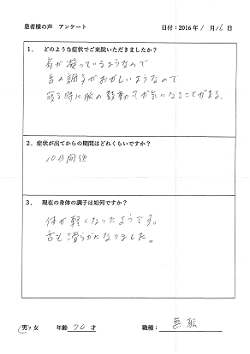 患者様の声　アンケート　日付：2016年1月16日
1．どのような症状でご来院いただきましたか？
肩が凝っているようなので
舌の調子がおかしいようなので
寝る時に脈の鼓動が気になることがある。
2．症状が出てからの期間はどれくらいですか？
10日間位
3．現在の身体の調子は如何ですか？
体が軽くなったようです。
舌も滑らかになりました。
男・女　年齢 70 才　職種：無職